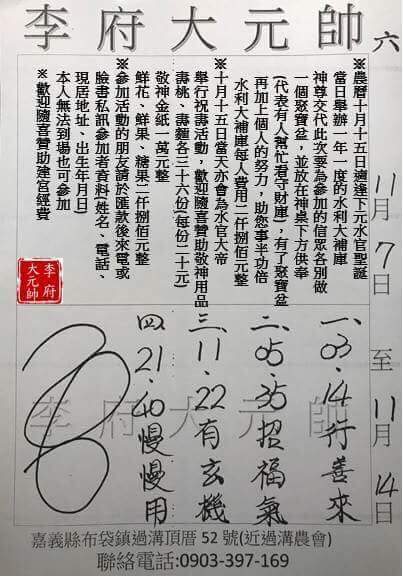 李府大元帥
六
11月7日至11月14日
※農曆十月十五日適逢下元水官聖誕
當日舉辦一年一度的水利大補庫
神尊交代此次要為參加的信眾各別做
一個聚寶盆，並放在神桌下方供奉
(代表有人幫忙看守財庫)，有了聚寶盆
再加上個人的努力，助您事半功倍
水利大補庫每人費用二仟捌佰元整
※十月十五日當天亦會為水官大帝
舉行祝壽活動，歡迎隨喜贊助敬神用品
壽桃、壽麵各三十六份(每份二十元)
敬神金紙一萬元整
鮮花、鮮果、糖果二仟捌佰元整
※參加活動的朋友請於匯款後來電或
臉書私訊參加者資料(姓名、電話、
現居地址、出生年月日)
本人無法到場也可參加
※歡迎隨喜贊助建宮經費
李府大元帥
一、03、14行善來
二、05、35招福氣
三、11、22有玄機
四、21、40慢慢用
李府大元帥
嘉義縣布袋鎮過溝頂厝 52 號(近過溝農會)
聯絡電話:0903-397-169